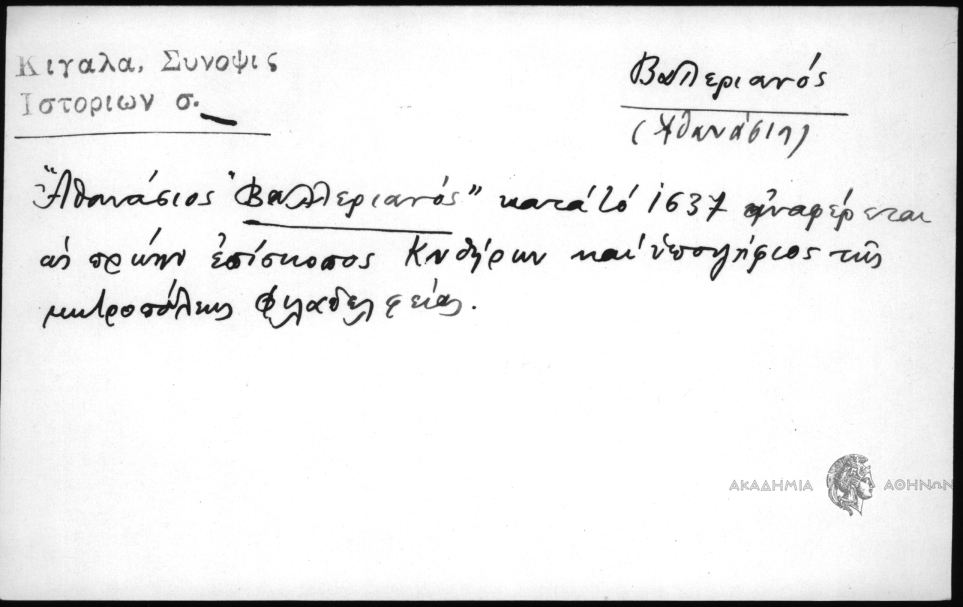 Κιγαλα, Συνοψις
Ιστοριων σ.
Βαλεριανός
(Ἀθανάσιος)
"Ἀθανάσιος Βαλλεριανός" κατά τό 1637 ἀναφέρεται
ὡς πρώην ἐπίσκοπος Κυθήρων καί ὑποψήφιος τῆς
μητροπόλεως Φιλαδελφείας.
ΑΚΑΔΗΜΙΑ ΑΘΗΝΩΝ